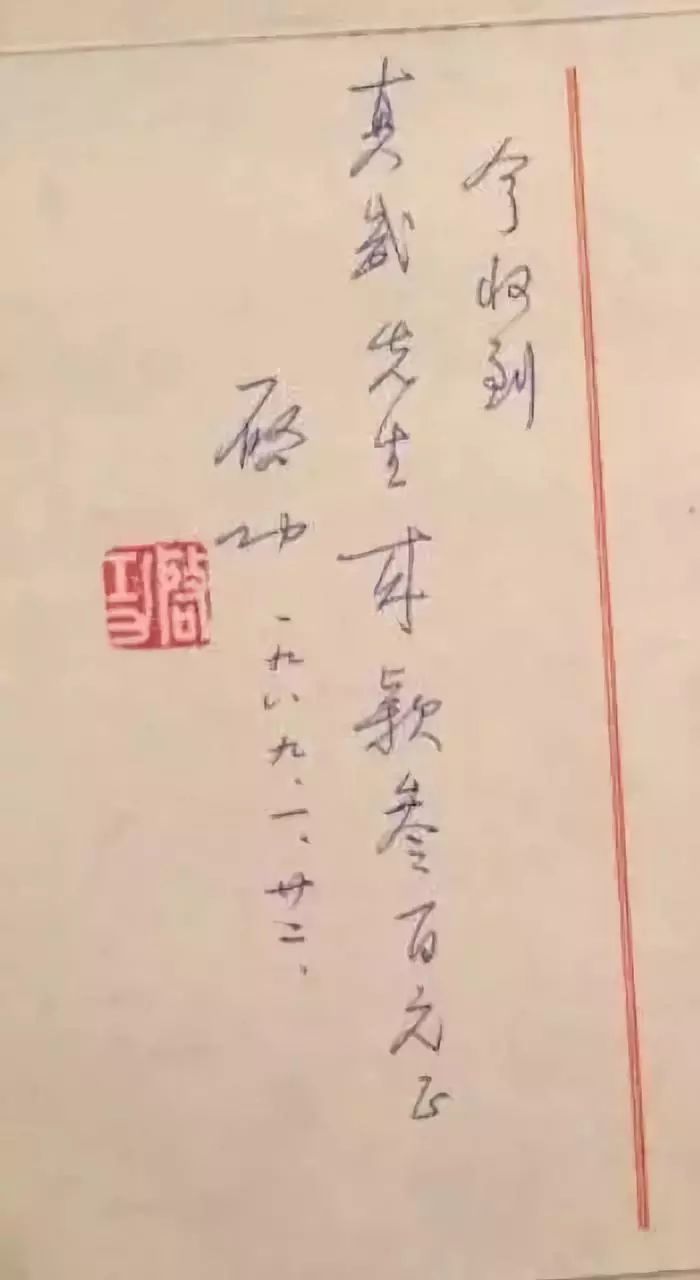 今收到
真诚先生存款叁百元正
启功
一九八九.一.廿二.
启功